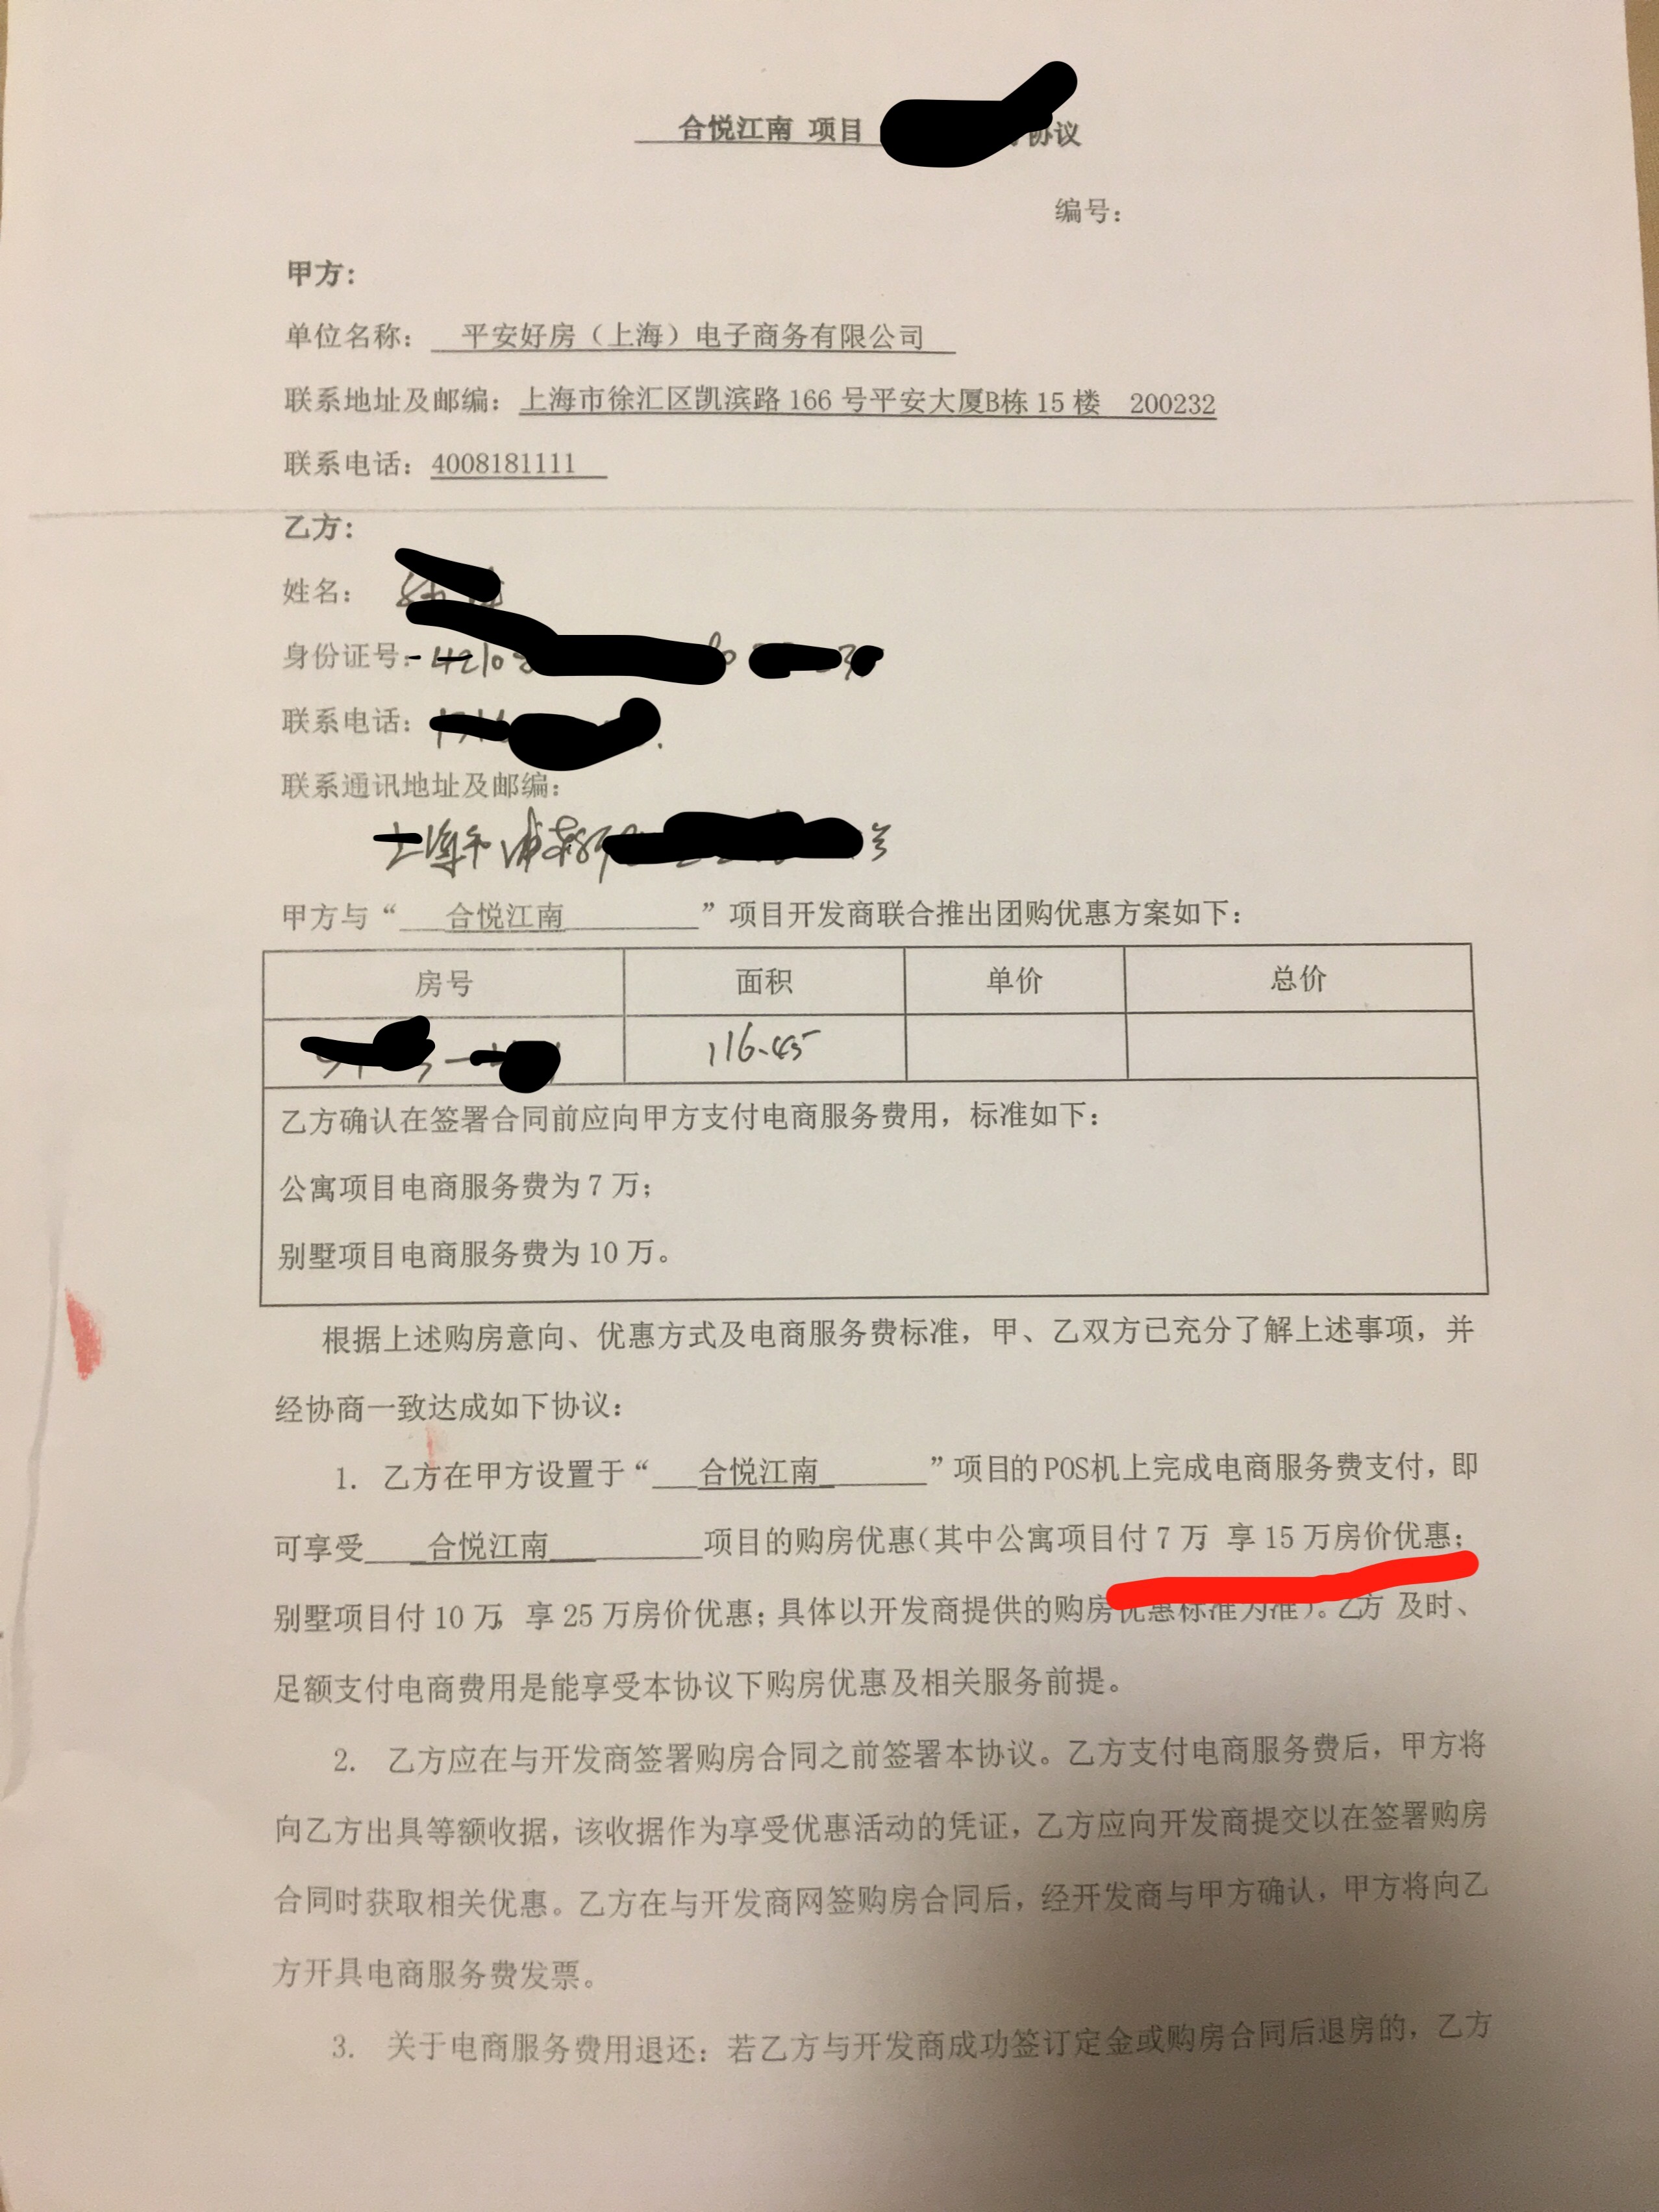 合悦江南 项目 协议
编号：
甲方：
单位名称： 平安好房（上海）电子商务有限公司
联系地址及邮编：上海市徐汇区凯滨路 166 号平安大厦B栋 15 楼 200232
联系电话：4008181111
乙方：
姓名：
身份证号：
联系电话：
联系通讯地址及邮编：
上海市浦东新 号
甲方与“ 合悦江南 ”项目开发商联合推出团购优惠方案如下：
房号 面积 单价 总价
116.45
乙方确认在签署合同前应向甲方支付电商服务费用，标准如下：
公寓项目电商服务费为 7 万；
别墅项目电商服务费为 10 万。
根据上述购房意向、优惠方式及电商服务费标准，甲、乙双方已充分了解上述事项，并
经协商一致达成如下协议：
1. 乙方在甲方设置于“ 合悦江南 ”项目的POS机上完成电商服务费支付，即
可享受 合悦江南 项目的购房优惠（其中公寓项目付 7 万 享 15 万房价优惠；
别墅项目付 10 万，享 25 万房价优惠；具体以开发商提供的购房优惠标准为准）。乙方 及时、
足额支付电商费用是能享受本协议下购房优惠及相关服务前提。
2. 乙方应在与开发商签署购房合同之前签署本协议。乙方支付电商服务费后，甲方将
向乙方出具等额收据，该收据作为享受优惠活动的凭证，乙方应向开发商提交以在签署购房
合同时获取相关优惠。乙方在与开发商网签购房合同后，经开发商与甲方确认，甲方将向乙
方开具电商服务费发票。
3. 关于电商服务费用退还：若乙方与开发商成功签订定金或购房合同后退房的，乙方